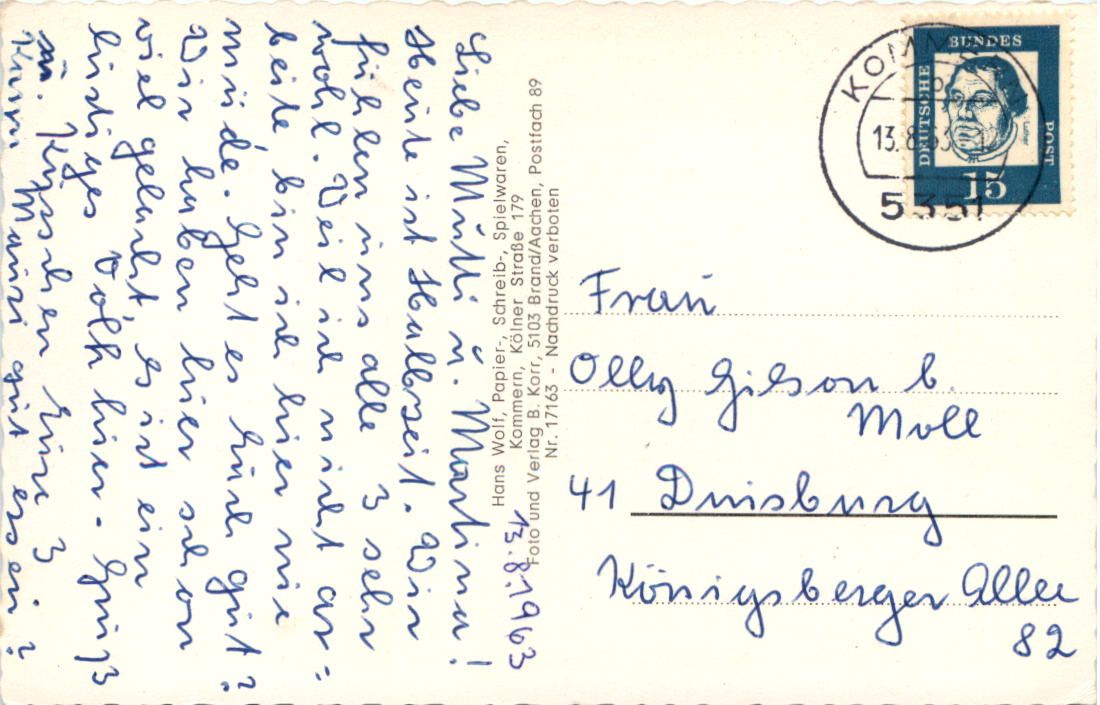 Liebe Mutti u. Martina!
Heute ist Halbzeit. Wir
fühlen uns alle 3 sehr
wohl. Weil ich nicht ar=
beite, bin ich hier nie
müde. Geht es Euch gut?
Wir haben hier schon
viel gelacht, es ist ein
lustiges Volk hier. Gruß
u. Küsschen Eure 3
Kann Mausi gut essen?
13.8.1963
Hans Wolf, Papier-, Schreib-, Spielwaren,
Kommern, Kölner Straße 179
Foto und Verlag B. Korr, 5103 Brand/Aachen, Postfach 89
Nr. 17163 - Nachdruck verboten
DEUTSCHE
BUNDES
POST
Luther
15
KOMMERN
13.8.63
5351
Frau
Olly Gilson b.
Moll
41 Duisburg
Königsberger Allee
82